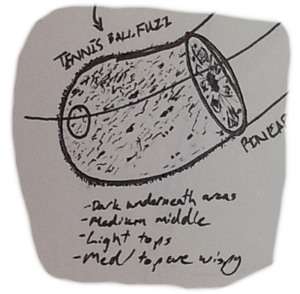 TENNIS BALL FUZZ
-Dark underneath areas
-Medium middle
-Light tops
-Med/top are wispy